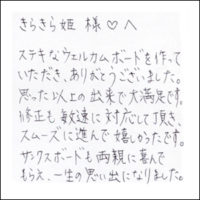 きらきら姫 様♡へ
ステキなウェルカムボードを作って
いただき、ありがとうございました。
思った以上の出来で大満足です。
修正も敏速に対応して頂き、
スムーズに進んで嬉しかったです。
サンクスボードも両親に喜んで
もらえ、一生の思い出になりました。